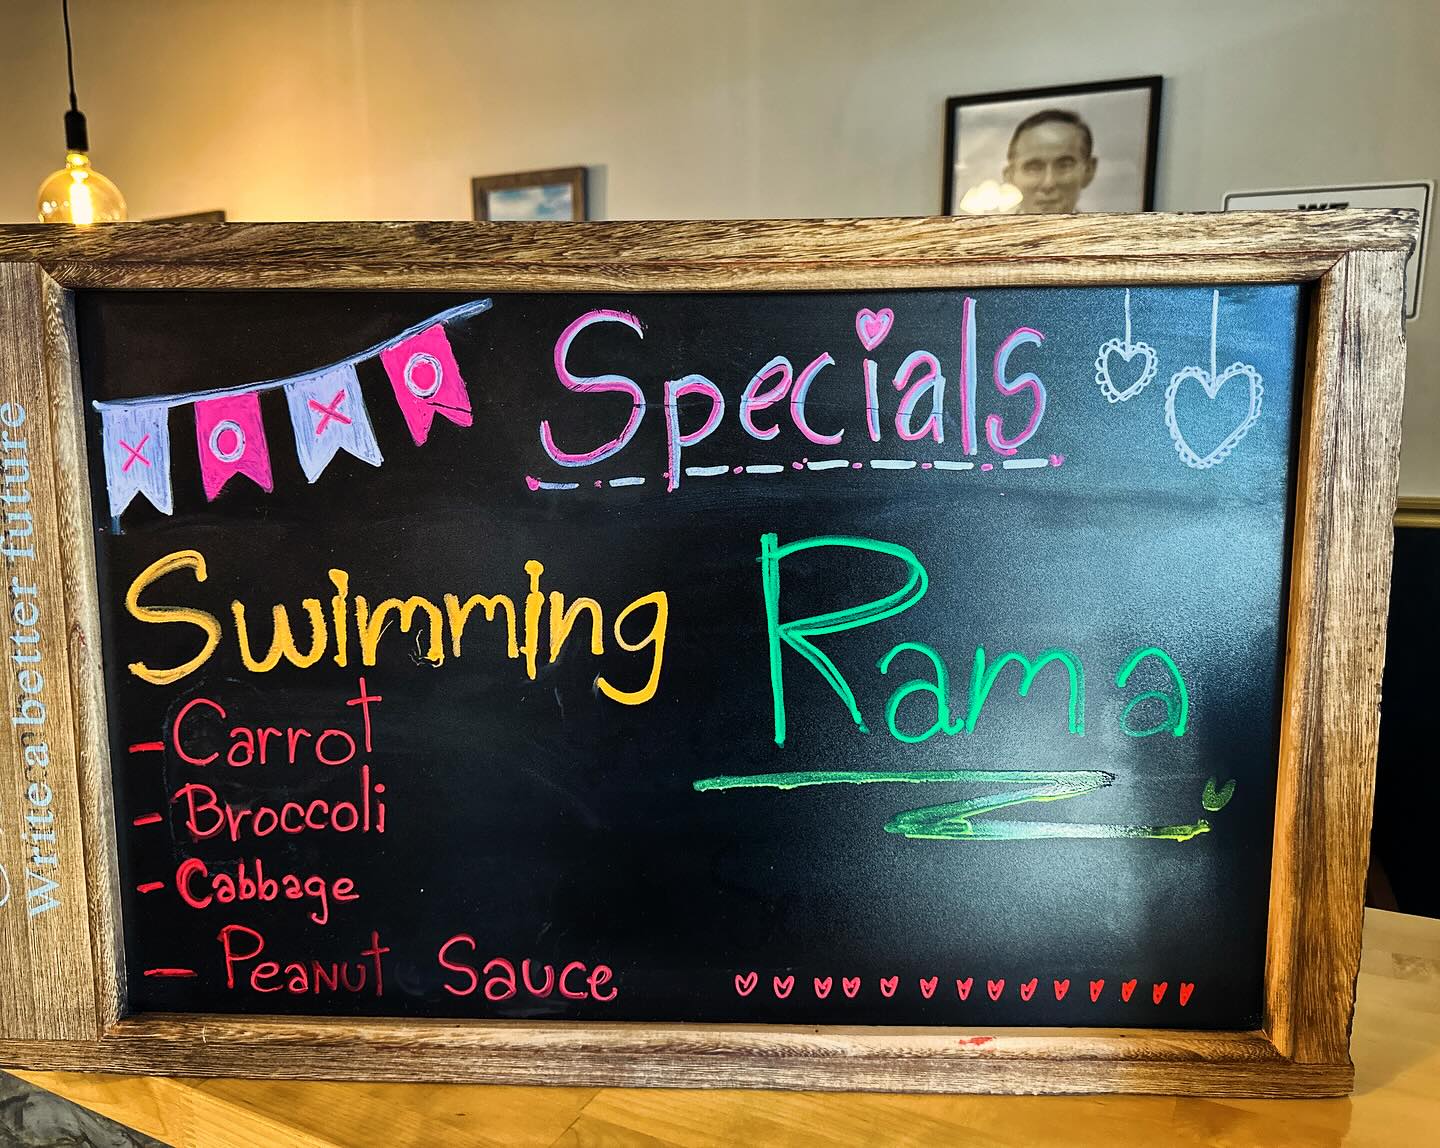 X O X O
Specials
Swimming Rama
- Carrot
- Broccoli
- Cabbage
- Peanut Sauce
write a better future
WE